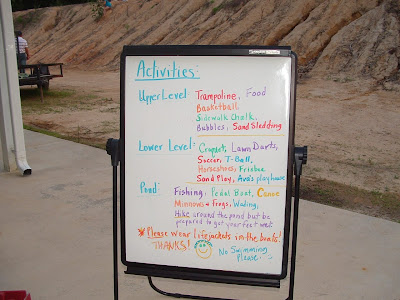 Activities:
Upper Level: Trampoline, Food
Basketball
Sidewalk Chalk,
Bubbles, Sand Sledding
Lower Level: Croquet, Lawn Darts,
Soccer, T-Ball,
Horseshoes, Frisbee
Sand Play, Ava's playhouse
Pond: Fishing, Pedal Boat, Canoe
Minnows & Frogs, Wading,
Hike around the pond but be
prepared to get your feet wet.
*Please wear lifejackets in the boats!
THANKS! No Swimming
Please.